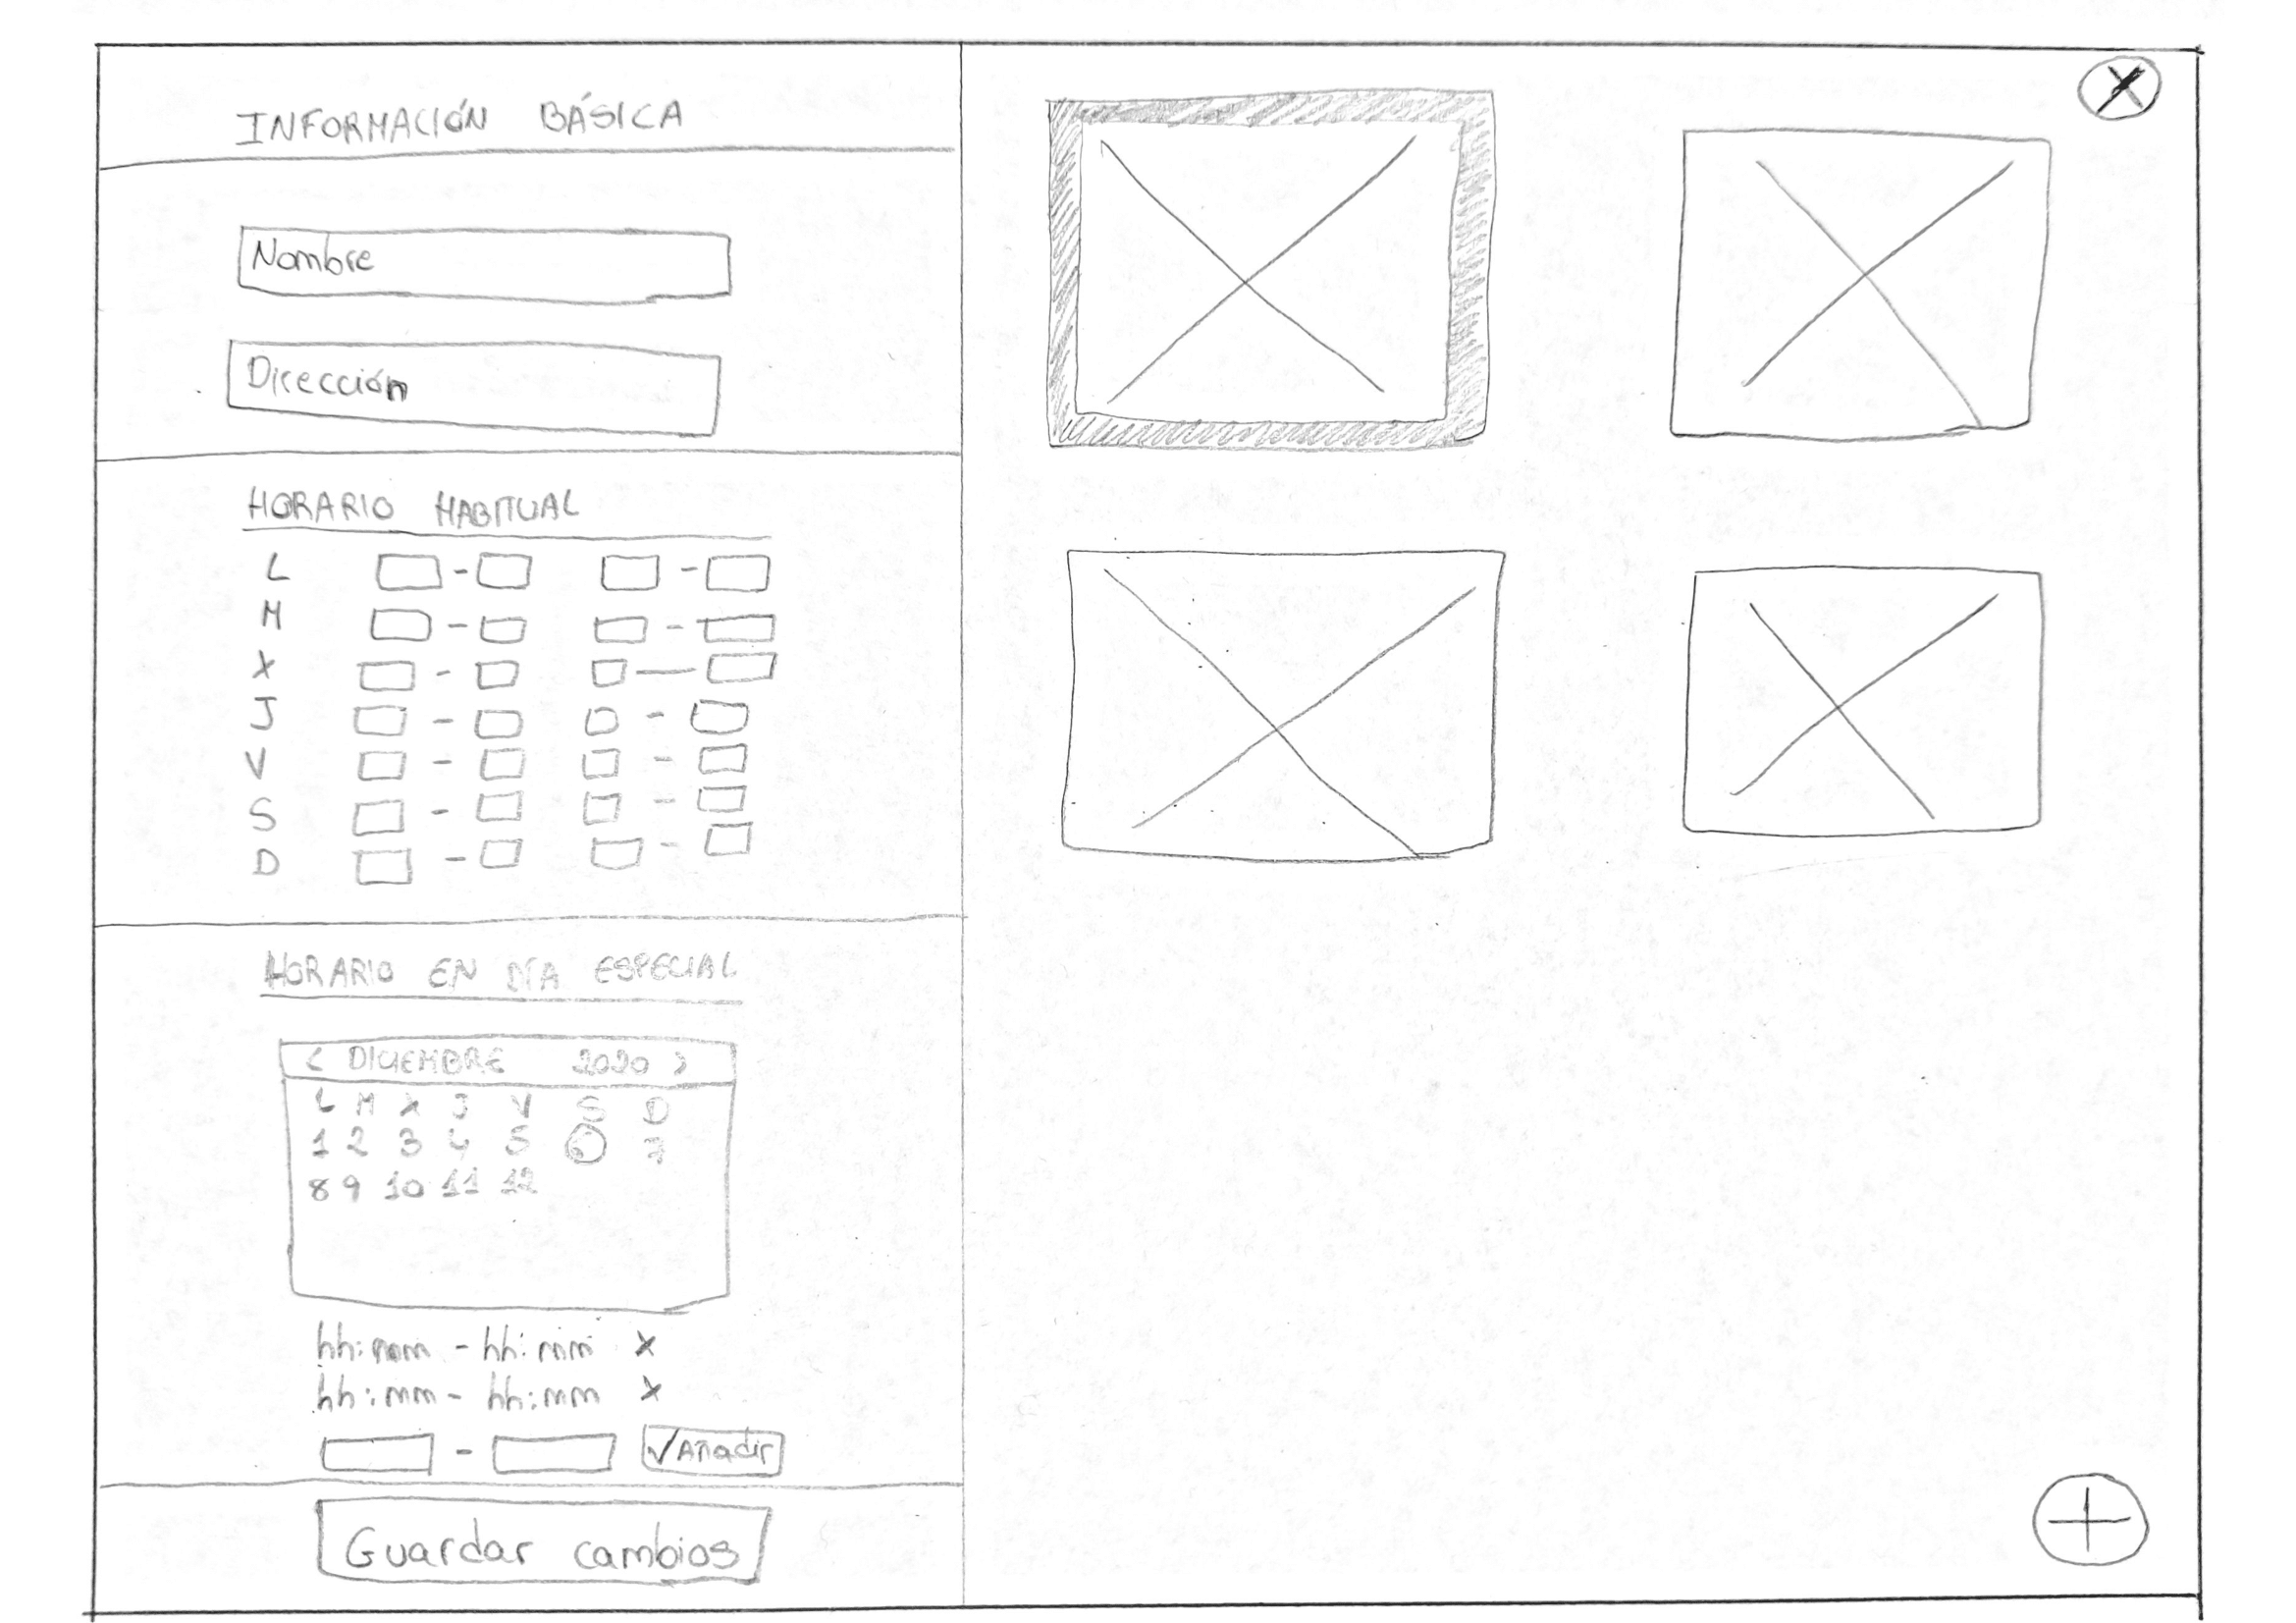 INFORMACIÓN BÁSICA
Nombre
Dirección
HORARIO HABITUAL
L
M
X
J
V
S
D
HORARIO EN DÍA ESPECIAL
< DICIEMBRE 2020 >
L M X J V S D
1 2 3 4 5 6 7
8 9 10 11 12
hh:mm - hh:mm X
hh:mm - hh:mm X
- ✓Añadir
Guardar cambios
X
+